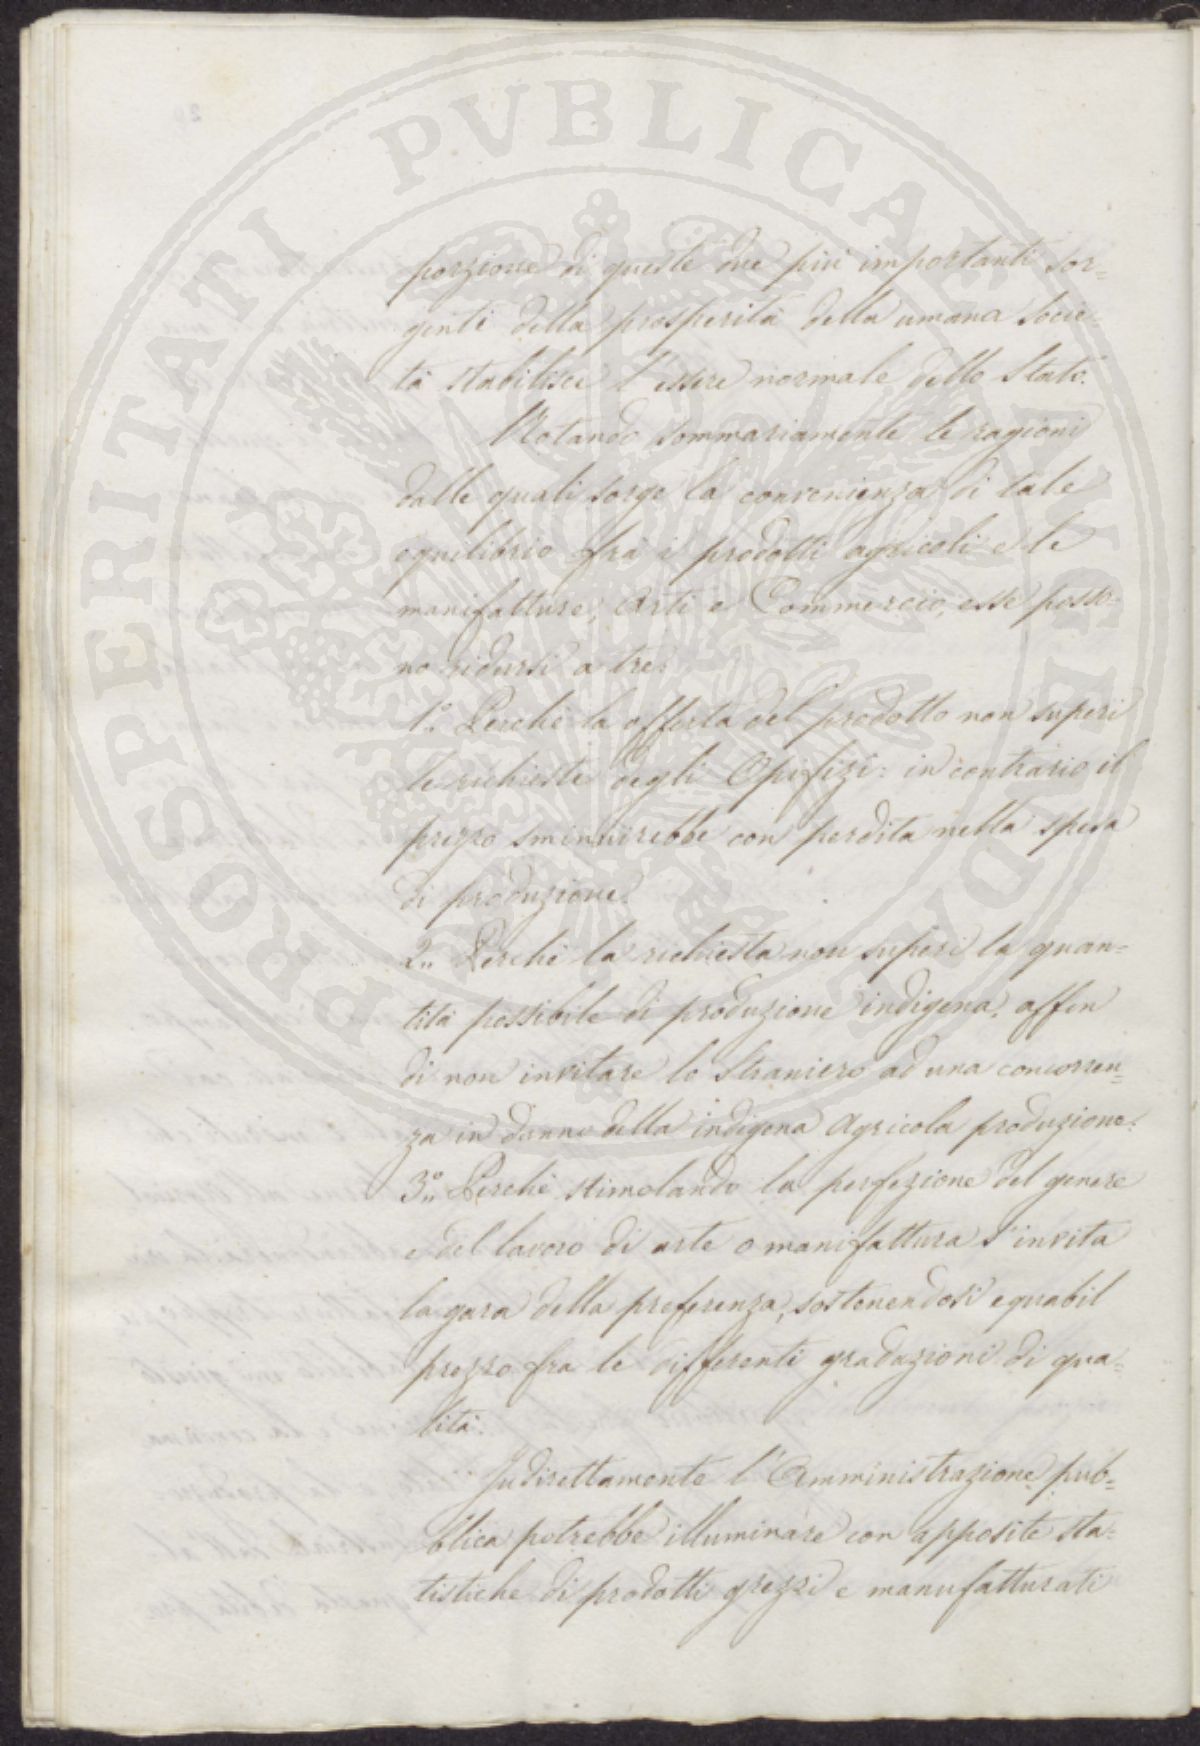 PROSPERITATI PVBLICAE AVGENDAE
porzione di queste due più importanti sor=
genti della prosperità della umana Socie=
tà stabilisce l'essere normale dello Stato.
Notando sommariamente le ragioni
dalle quali sorge la convenienza di tale
equilibrio fra i prodotti agricoli e le
manifatture, Arti e Commercio, esse posso=
no ridursi a tre.
1.° Perchè la offerta del prodotto non superi
le richieste degli Opifizi: in contrario il
prezzo sminuirebbe con perdita nella spesa
di produzione.
2.. Perchè la richiesta non superi la quan=
tità possibile di produzione indigena, affin
di non invitare lo Straniero ad una concorren=
za in danno della indigena Agricola produzione.
3.° Perchè stimolando la perfezione del genere
e del lavoro di arte o manifattura s'invita
la gara della preferenza, sostenendosi equabil
prezzo fra le differenti graduazioni di qua=
lità.
Indirettamente l'Amministrazione pub=
blica potrebbe illuminare con apposite sta=
tistiche di prodotti grezzi e manufatturati